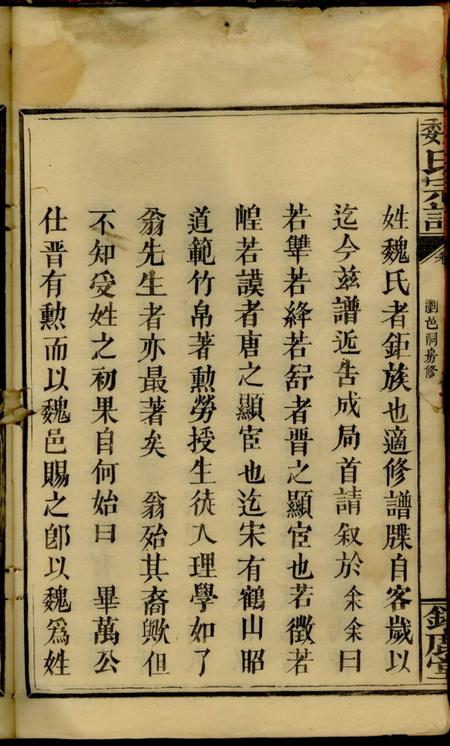 魏氏宗譜
卷
瀏邑洞房修
姓魏氏者鉅族也適修譜牒自客歲以
迄今兹譜近告成局首請叙於余余曰
若犫若絳若舒者晋之顯宦也若徵若
崲若謨者唐之顯宦也迄宋有鶴山昭
道範竹帛著勲勞授生徒入理學如了
翁先生者亦最著矣 翁殆其裔歟但
不知受姓之初果自何始曰 畢萬公
仕晋有勲而以魏邑賜之卽以魏爲姓